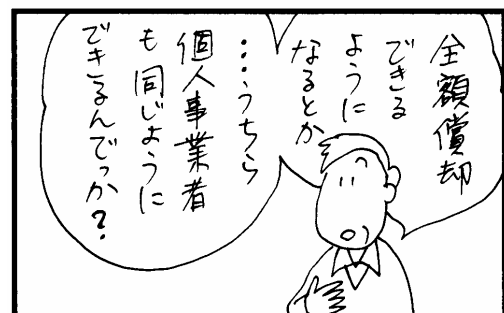 全額償却
できる
ように
なるとか
…うちら
個人事業者
も同じように
できるんでっか?